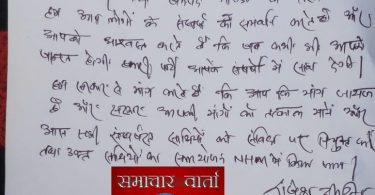 हम आप लोगों के संघर्ष का समर्थन करते हैं और
आपको आश्वस्त करते हैं कि जब कभी भी आपको
जरूरत होगी हमारी पार्टी आपके संघर्षों में साथ देगी।
हम सरकार से मांग करते हैं कि आप की मांग जायज
है और सरकार आपकी मांगों को तत्काल माने और
आप सभी संघर्षरत साथियों को संविदा पर नियुक्त करे
तथा उक्त साथियों का समायोजन NHM में किया जाय।
समाचार वार्ता